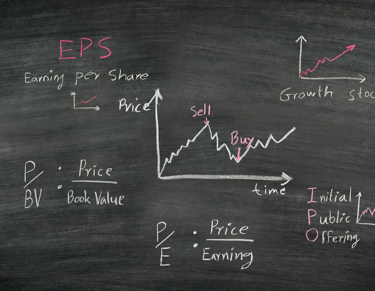 EPS
Earning per Share
Price
Sell
Buy
time
Growth stoc
P/BV : Price/Book Value
P/E : Price/Earning
Initial
Public
Offering